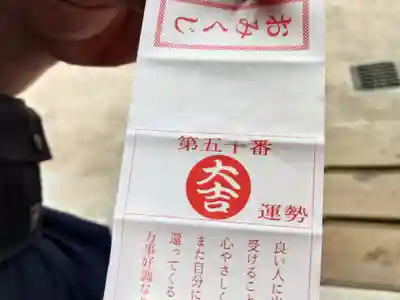 おみくじ
第五十番
大吉
運勢
良い人に出
受けること
心やさしく
また自分に
還ってくる
万事好調な